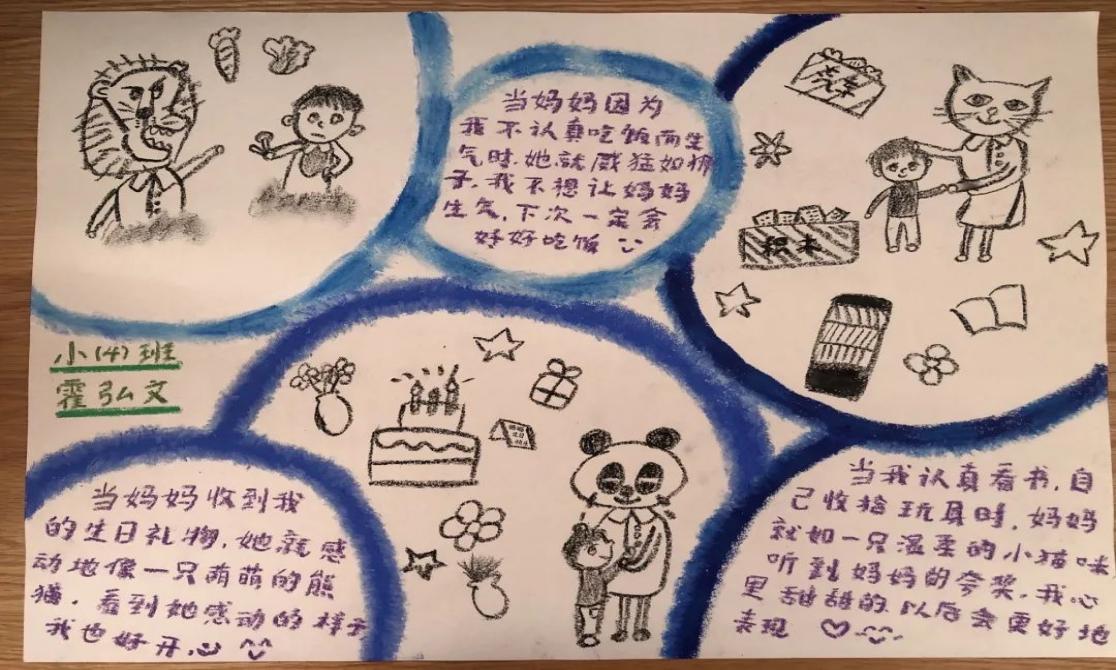 当妈妈因为
我不认真吃饭而生
气时,她就威猛如狮
子,我不想让妈妈
生气,下次一定会
好好吃饭
积木
小(4)班
霍弘文
当妈妈收到我
的生日礼物,她就感
动地像一只萌萌的熊
猫,看到她感动的样子
我也好开心
当我认真看书,自
己收拾玩具时,妈妈
就如一只温柔的小猫咪
听到妈妈的夸奖,我心
里甜甜的以后会更好地
表现